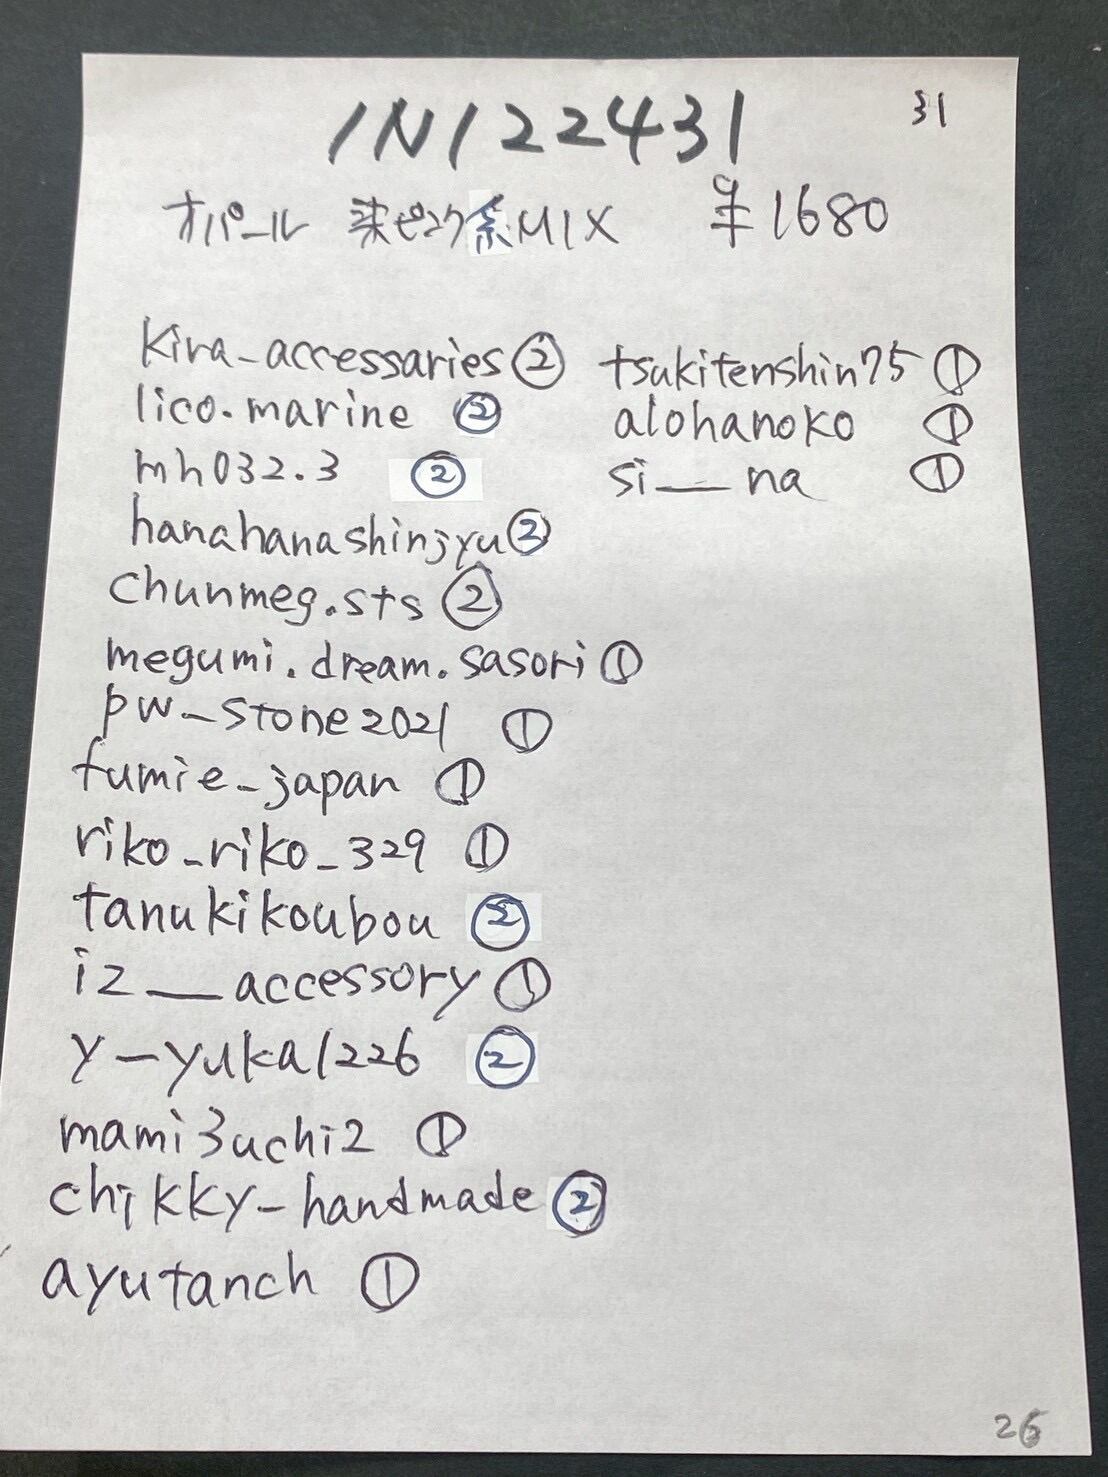 31
IN122431
オパール 染ピンク系MIX ¥1680
kira-accessaries②
lico.marine ②
mh032.3 ②
hanahanashinjyu②
chunmeg.sts ②
megumi.dream.sasori①
pw-stone2021 ①
fumie-japan ①
riko-riko-329 ①
tanukikoubou ②
iz__accessory①
y-yuka1226 ②
mami3uchi2 ①
chikky-handmade②
ayutanch ①
tsukitenshin75 ①
alohanoko ①
si__na ①
26